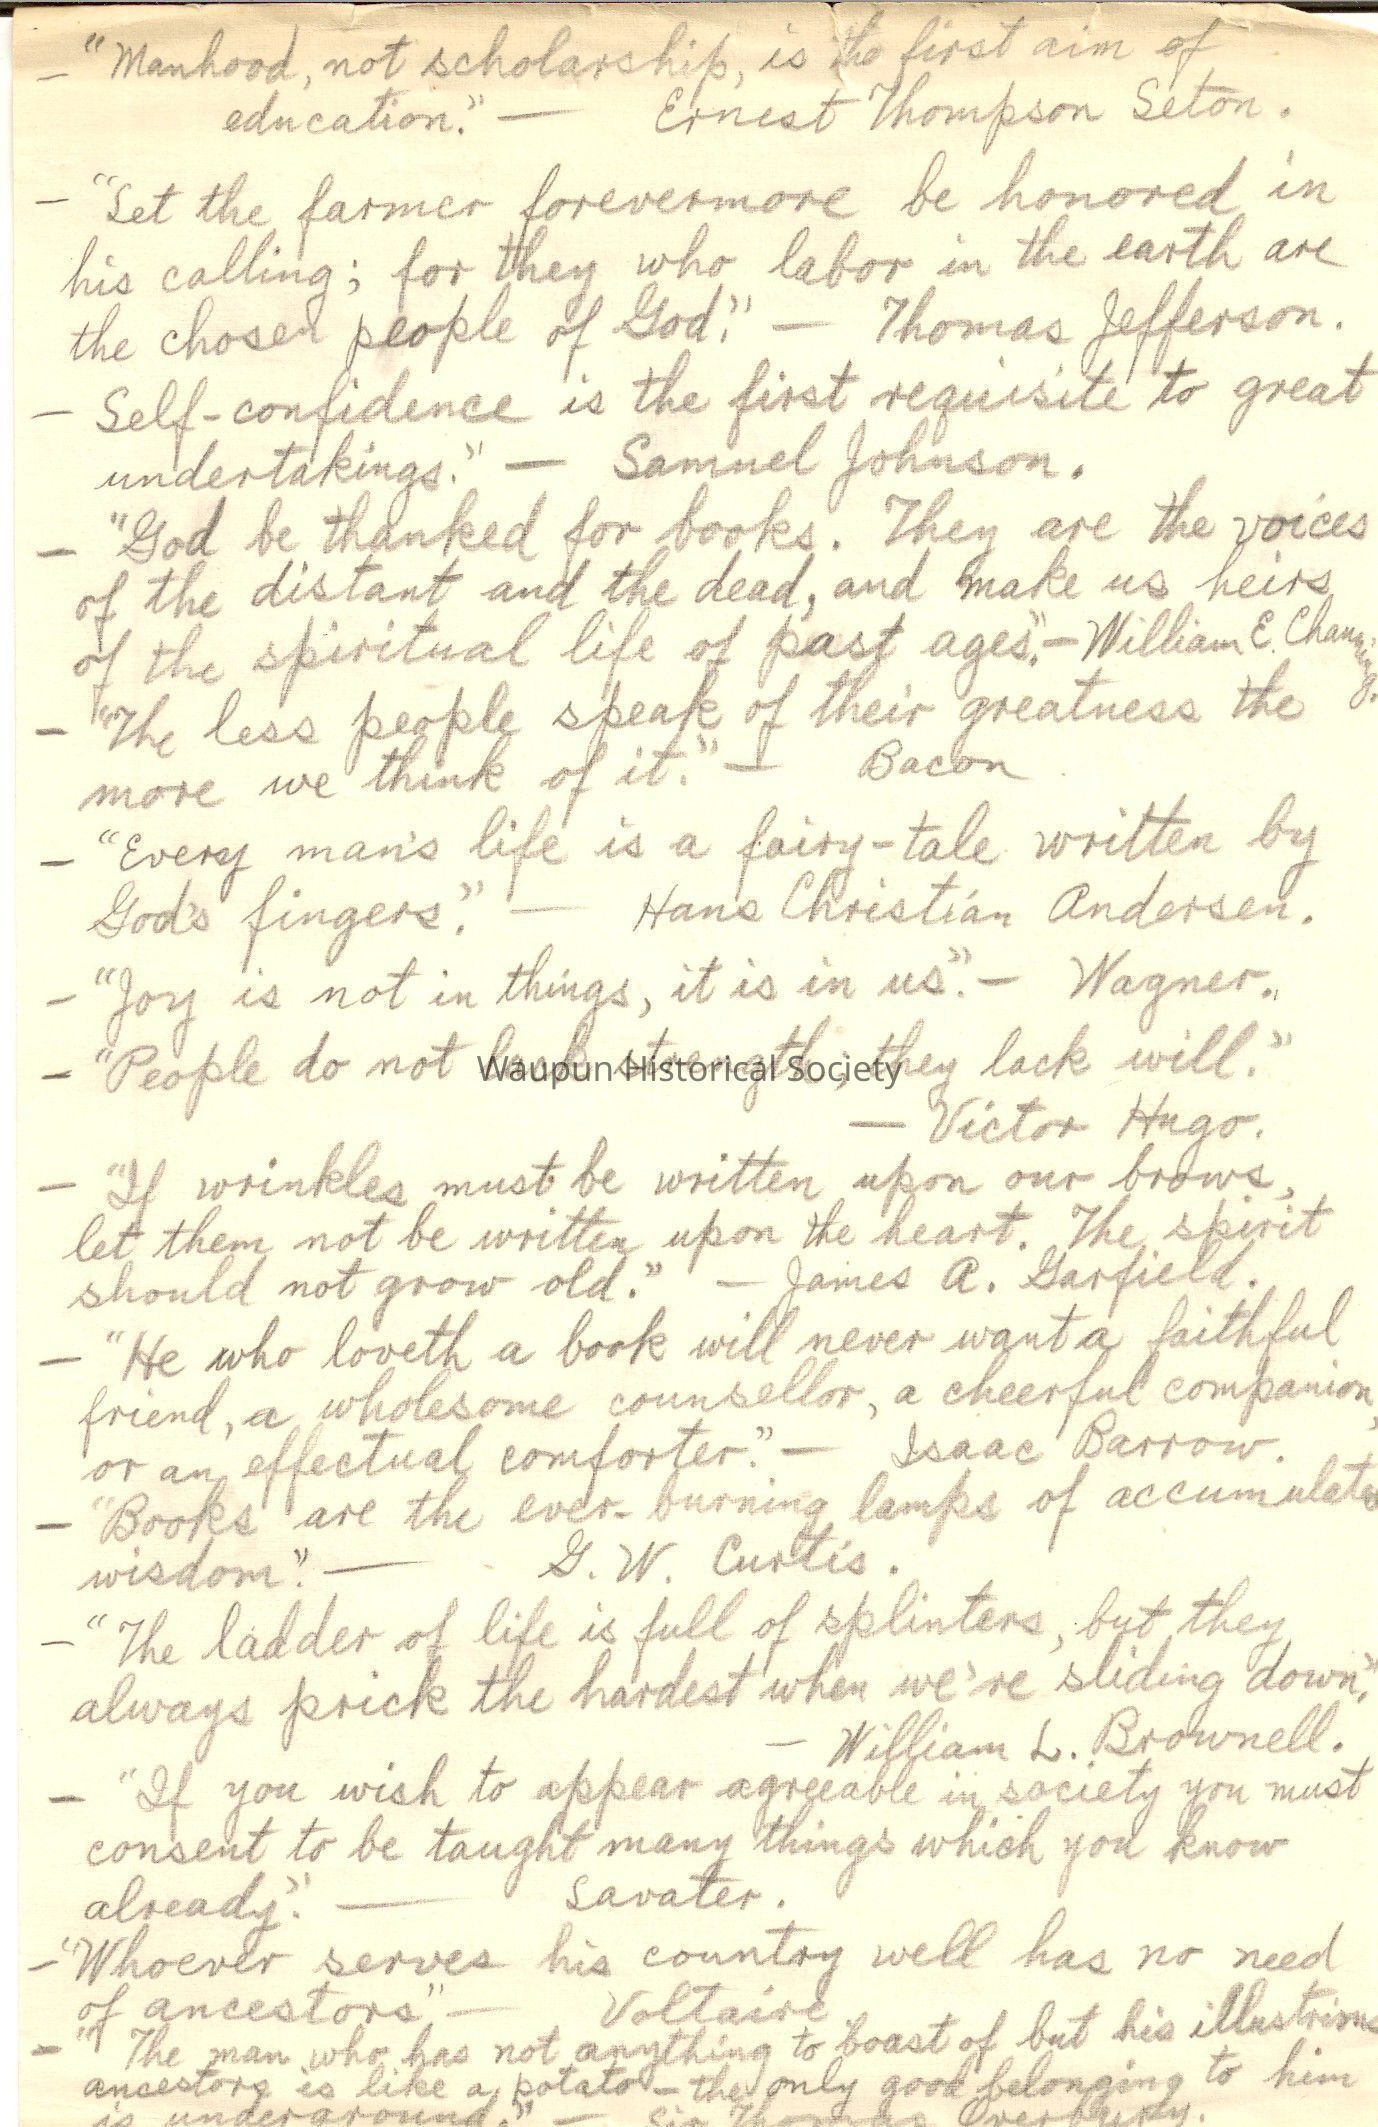 - "Manhood, not scholarship, is the first aim of
education." — Ernest Thompson Seton.
- "Let the farmer forevermore be honored in
his calling; for they who labor in the earth are
the chosen people of God." — Thomas Jefferson.
- Self-confidence is the first requisite to great
undertakings." — Samuel Johnson.
- "God be thanked for books. They are the voices
of the distant and the dead, and make us heirs
of the spiritual life of past ages." — William E. Channing.
- "The less people speak of their greatness the
more we think of it." — Bacon
- "Every man's life is a fairy-tale written by
God's fingers." — Hans Christian Andersen.
- "Joy is not in things, it is in us". — Wagner.
- "People do not lack strength; they lack will."
Waupun Historical Society
— Victor Hugo.
- "If wrinkles must be written upon our brows,
let them not be written upon the heart. The spirit
should not grow old." — James A. Garfield.
- "He who loveth a book will never want a faithful
friend, a wholesome counsellor, a cheerful companion,
or an effectual comforter." — Isaac Barrow.
- "Books are the ever-burning lamps of accumulated
wisdom". — G. W. Curtis.
- "The ladder of life is full of splinters, but they
always prick the hardest when we're sliding down."
— William L. Brownell.
- "If you wish to appear agreeable in society you must
consent to be taught many things which you know
already". — Savater.
- "Whoever serves his country well has no need
of ancestors" — Voltaire
- "The man who has not anything to boast of but his illustrious
ancestors is like a potato - the only good belonging to him
is underground." — Sir Thomas Overbury.